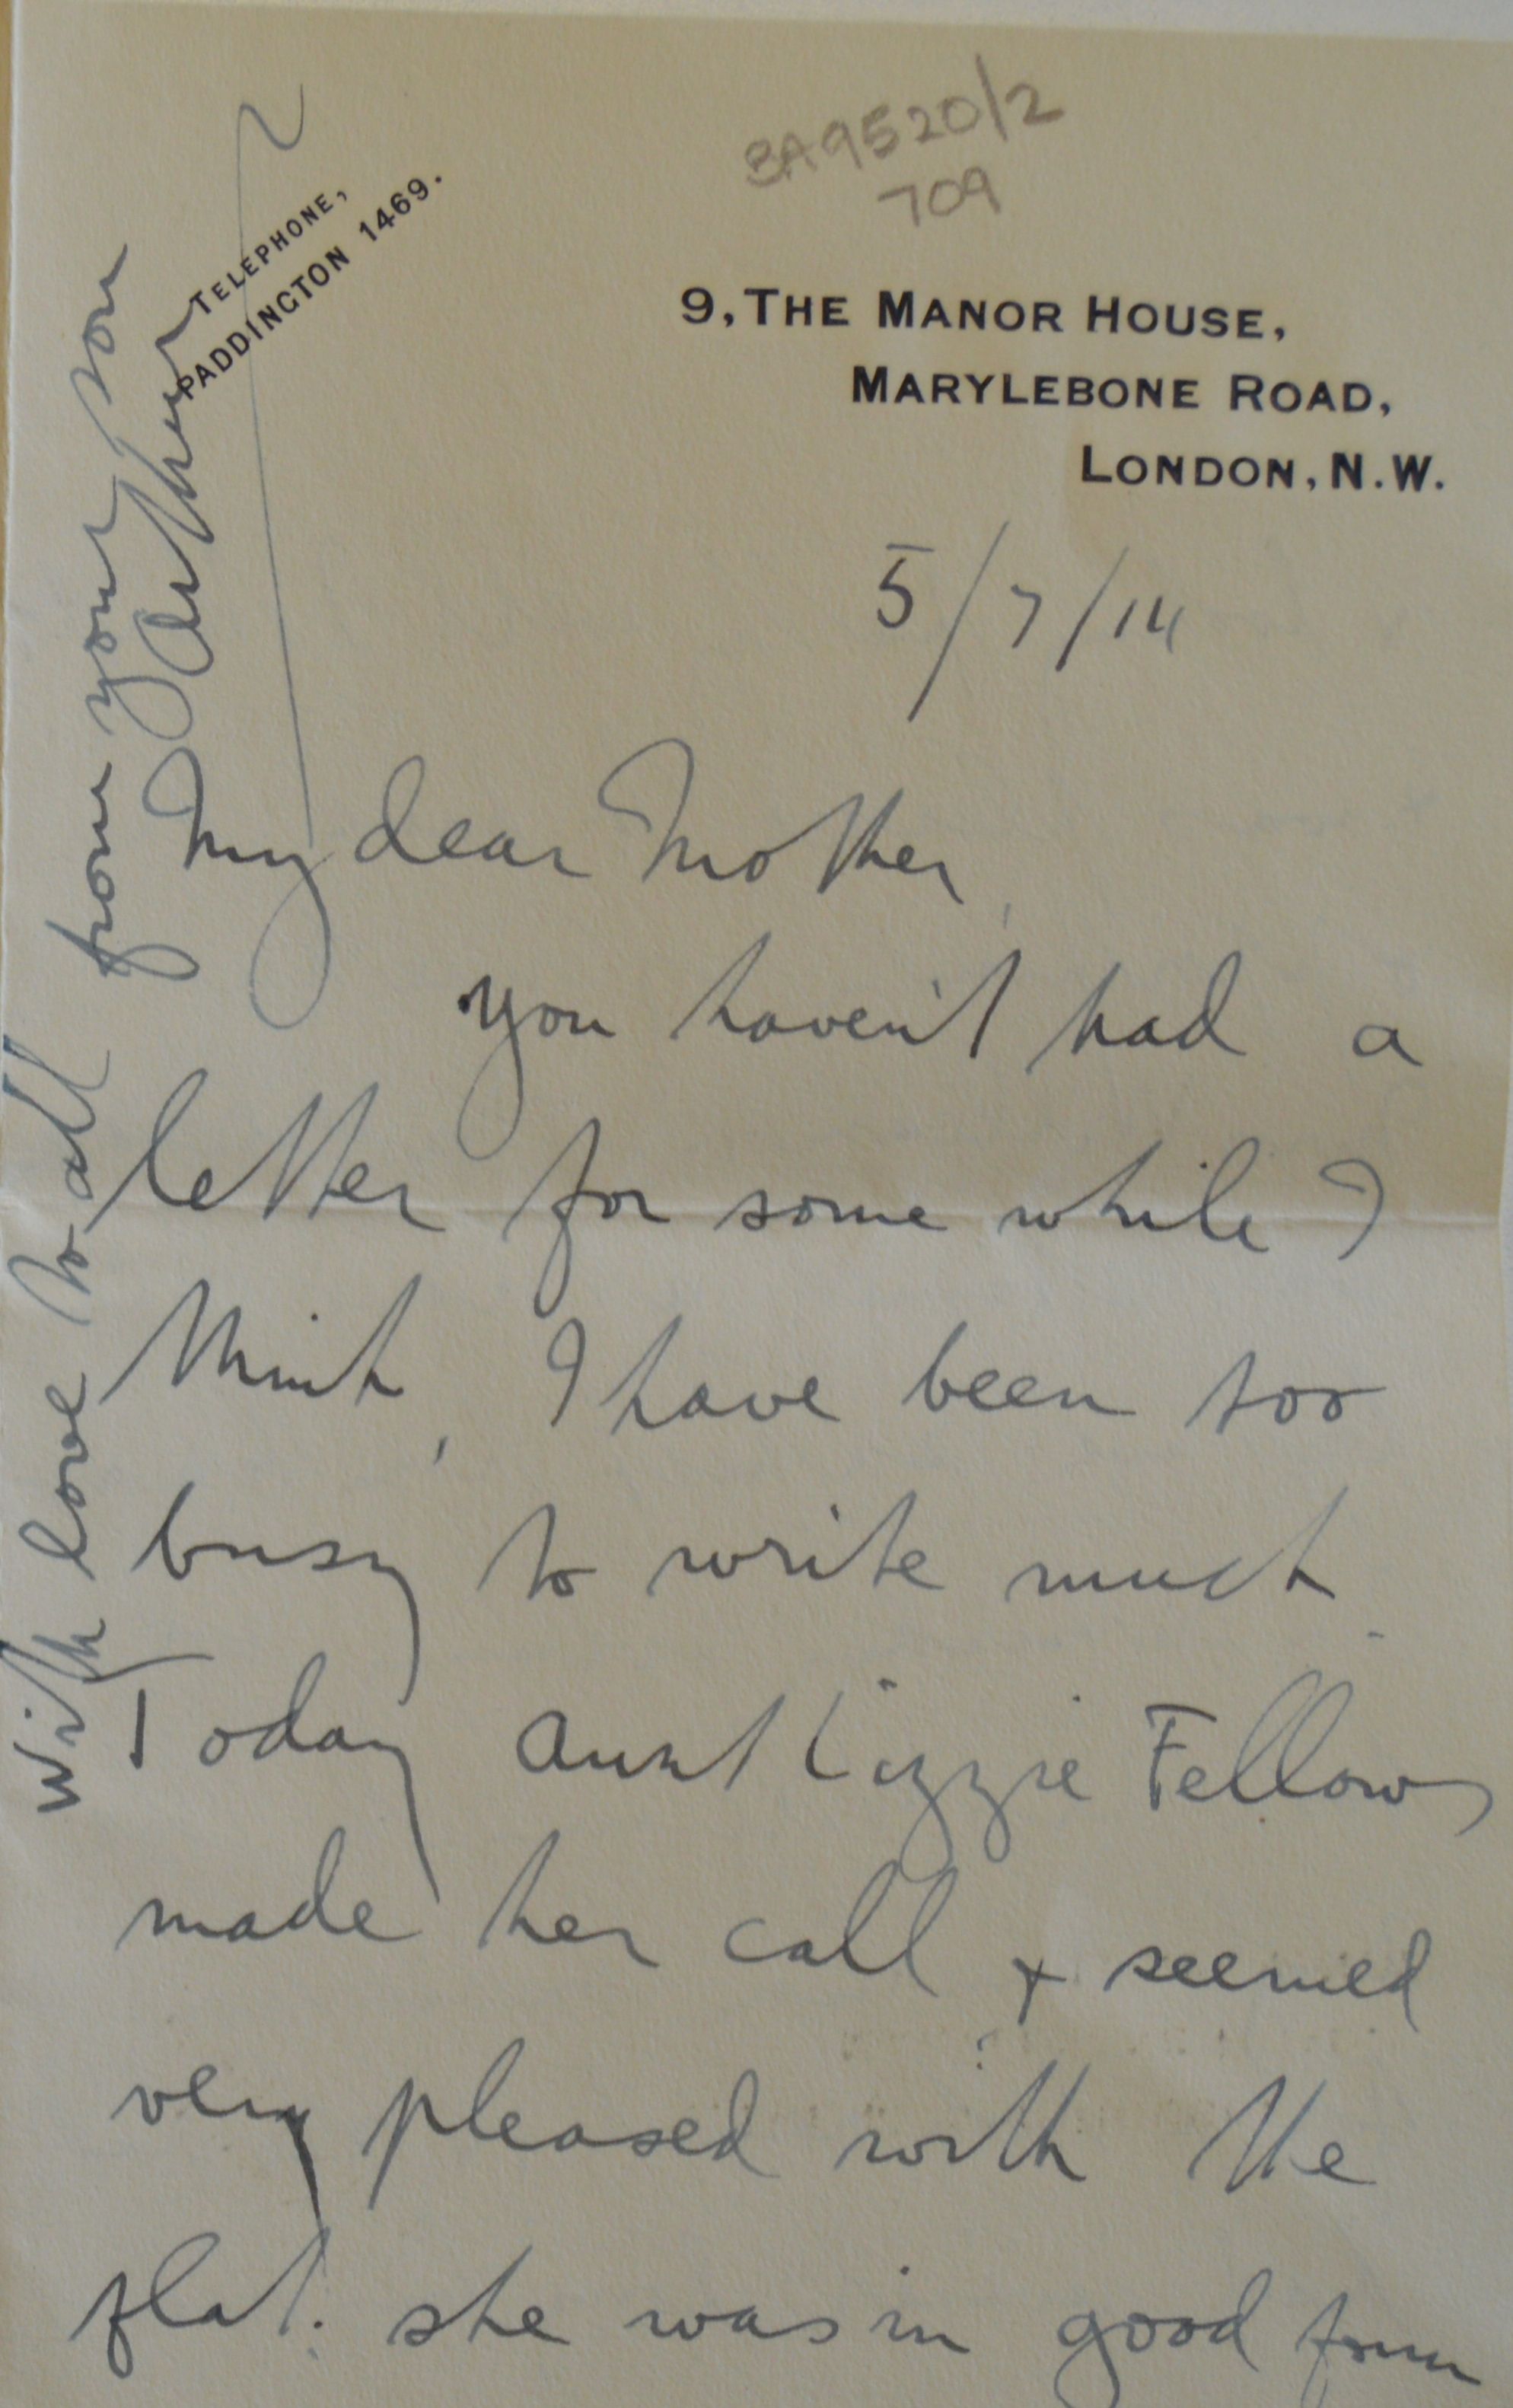 BA9520/2
709
TELEPHONE,
PADDINGTON 1469.
9, THE MANOR HOUSE,
MARYLEBONE ROAD,
LONDON, N.W.
5/7/14
My dear Mother,
you haven't had a
letter for some while I
think, I have been too
busy to write much.
Today Aunt Lizzie Fellows
made her call + seemed
very pleased with the
flat: she was in good form
with love to all from your son
Arthur